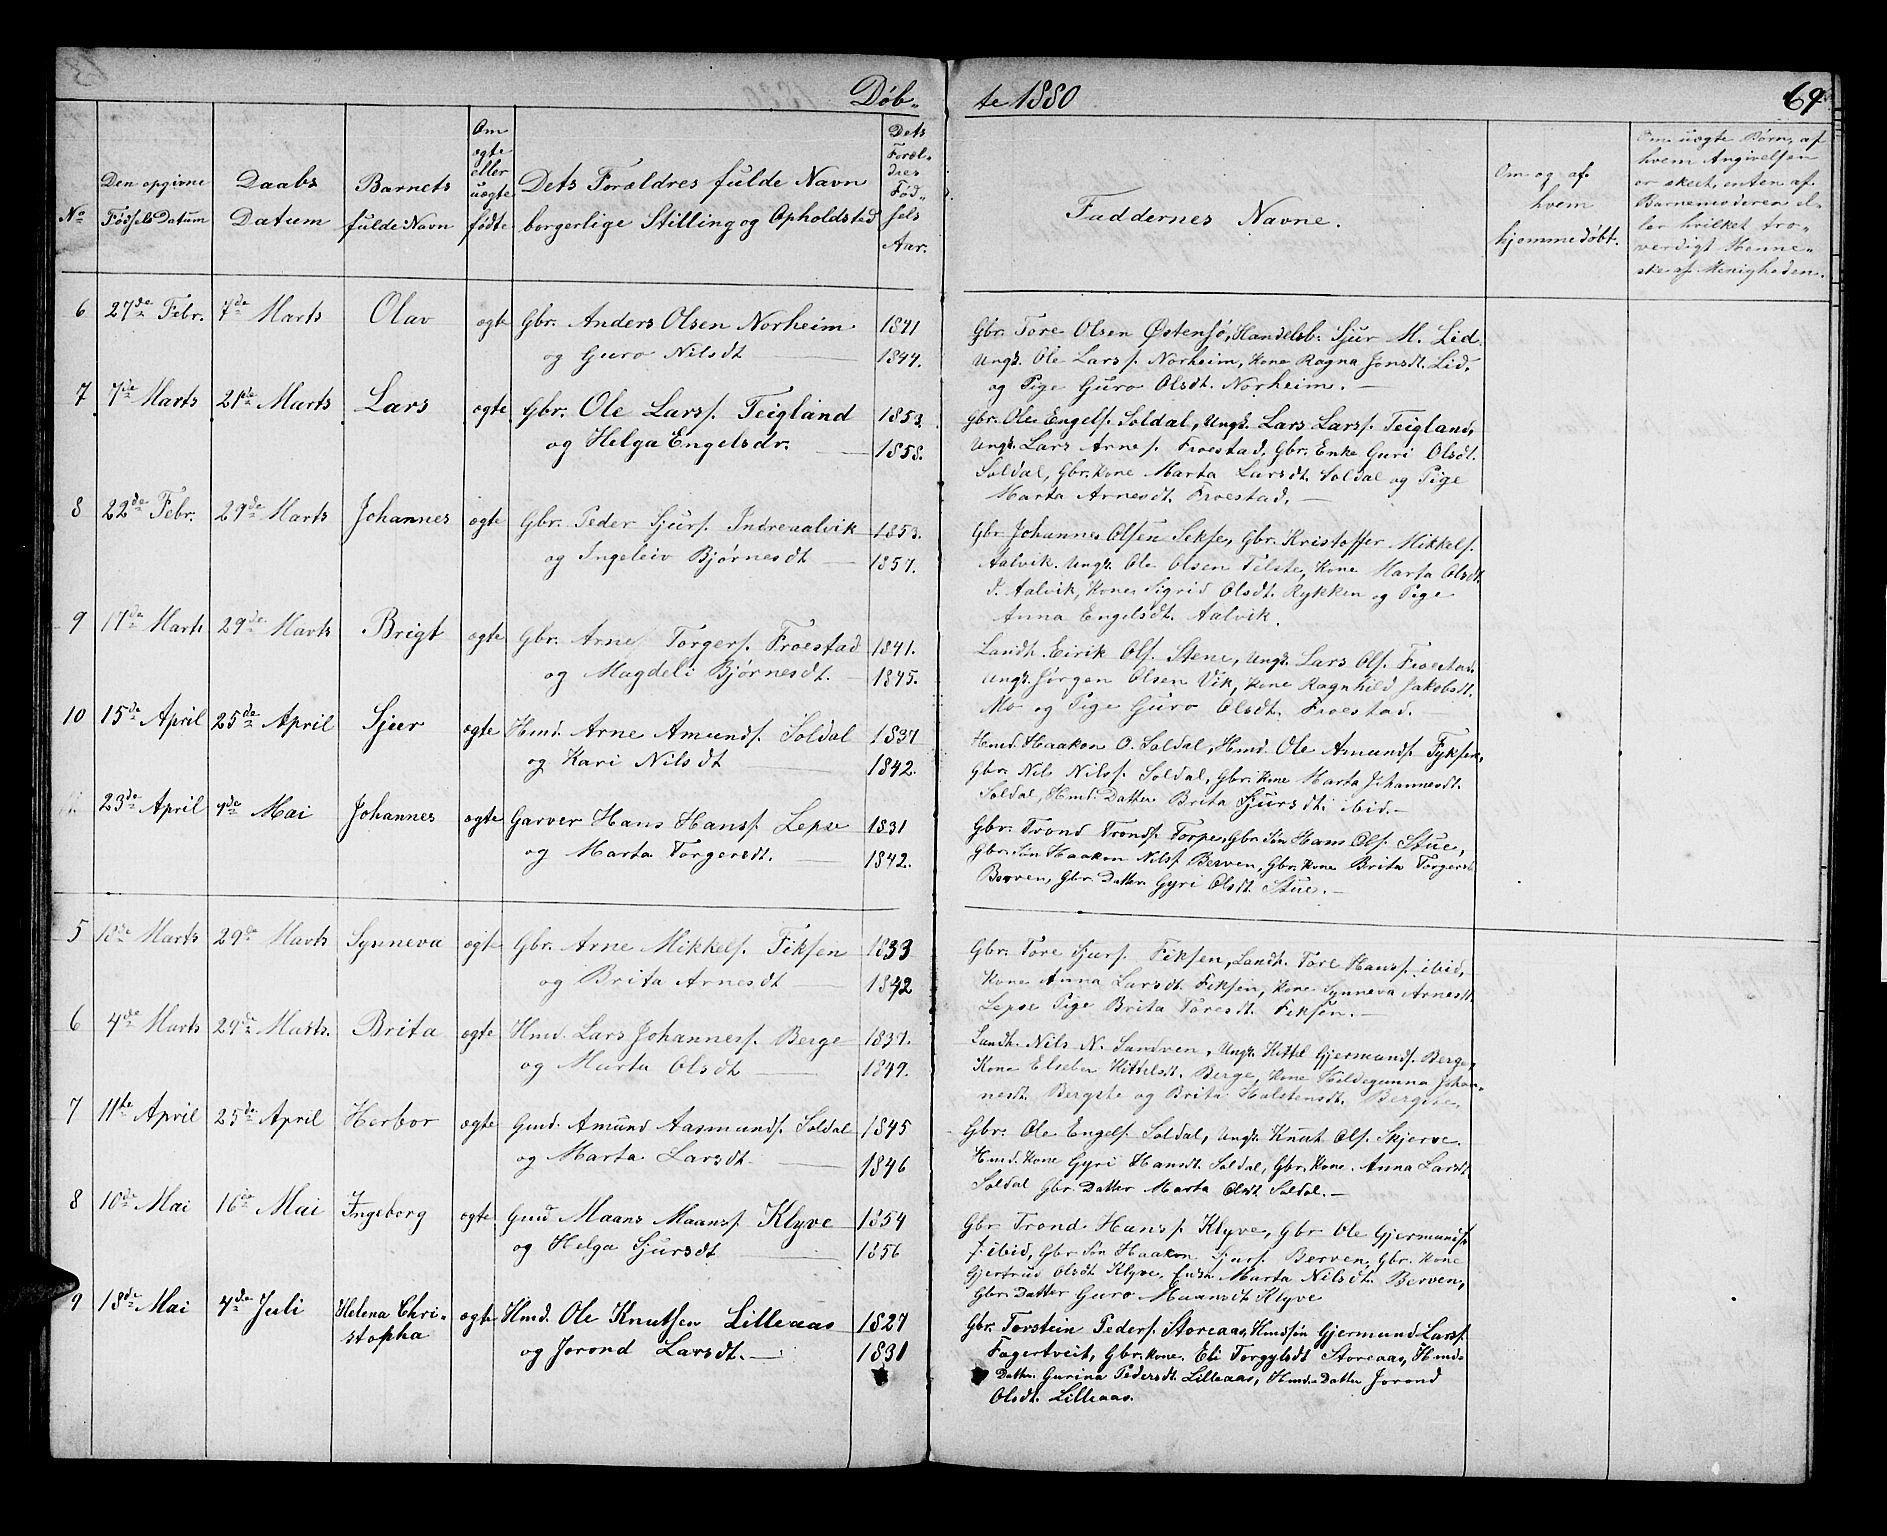 Døb-
te 1880
69
No
Den opgivne
Fødsels Datum
Daabs
Datum
Barnets
fulde Navn
Om
ægte
eller
uægte
fødte
Dets Forældres fulde Navn
borgerlige Stilling og Opholdsted
Dets
Foræl-
dres
Fød-
sels
Aar.
Faddernes Navne.
Om og af
hvem
hjemmedøbt.
Om uægte Børn, af
hvem Angivelsen
er skeet, enten af
Barnemoderen el-
ler hvilket tro-
værdigt Menne-
ske af Menigheden.
6 27de Febr. 7de Marts Olav ægte Gbr. Anders Olsen Norheim 1841
og Guro Nilsdt 1844.
Gbr. Tore Olsen Østensø, Handelsb. Sjur M. Lid
Ungk. Ole Larsf. Norheim, Kone Ragna Jonsdt. Lid,
og Pige Guro Olsdt. Norheim. —
7 7de Marts 21de Marts Lars ægte Gbr. Ole Larsf. Teigland 1853.
og Helga Engelsdr. 1858.
Gbr. Ole Engelsf. Soldal, Ungk. Lars Larsf. Teigland,
Ungk. Lars Arnesf. Froestad, Gbr. Enke Guri Olsdt.
Soldal, Gbr. Kone Marta Larsdt. Soldal og Pige
Marta Arnesdt. Froestad. —
8 22de Febr. 29de Marts Johannes ægte Gbr. Peder Sjursf. Indreaalvik 1853.
og Ingeleiv Bjørnesdt 1857.
Gbr. Johannes Olsen Sekse, Gbr. Kristoffer Mikkelsf.
Aalvik. Ungk. Ole Olsen Tilste, Kone Marta Olsdt.
Aalvik, Kone Sigrid Olsdt. Rykken og Pige
Anna Engelsdt. Aalvik.
9 17de Marts 29de Marts Brigt ægte Gbr. Arne Torgersf. Froestad 1841.
og Magdeli Bjørnesdt. 1845.
Landh. Eirik Olsf. Stene, Ungk. Lars Olsf. Froestad,
Ungk. Jørgen Olsen Vik, Kone Ragnhild Jakobsdt.
Mo og Pige Guro Olsdt. Froestad. —
10 15de April 25de April Sjur ægte Hmd. Arne Amundsf. Soldal 1837
og Kari Nilsdt 1842.
Hmd. Haakon O. Soldal, Hmd. Ole Amundsf. Fyksen,
Gbr. Nils Nilsf. Soldal, Gbr. Kone Marta Johannesdt.
Soldal, Hmd. Datter Brita Sjursdt. ibid. —
11 23de April 7de Mai Johannes ægte Garver Hans Hansf. Lepse 1831
og Marta Torgersdt. 1842.
Gbr. Trond Trondsf. Torpe, Gbr. Søn Hans Olsf. Stue,
Gbr. Søn Haakon Nilsf. Berven, Gbr. Kone Brita Torgersdt.
Berven, Gbr. Datter Gyri Olsdt. Stue. —
5 18de Marts 29de Marts Synneva ægte Gbr. Arne Mikkelsf. Fiksen 1833
og Brita Arnesdt 1842
Gbr. Tore Sjursf. Fiksen, Landh. Tore Hansf. ibid,
Kone Anna Larsdt. Fiksen, Kone Synneva Arnesdt.
Lepse Pige Brita Toresdt. Fiksen. —
6 4de Marts 29de Marts. Brita ægte Hmd. Lars Johannesf. Berge 1837.
og Marta Olsdt 1849.
Landh. Nils N. Sandven, Ungk. Kittil Gjermundsf. Berge,
Kone Elseber Kittilsdt. Berge, Kone Hildegunna Johan-
nesdt. Bergste og Brita Halstensdt. Bergste.
7 11te April 25de April Herbor ægte Gmd. Amund Aasmundsf. Soldal 1845
og Marta Larsdt. 1846
Gbr. Ole Engelsf. Soldal, Ungk. Knut Olsf. Skjerve.
Hmd. Kone Gyri Hansdt. Soldal, Gbr. Kone. Anna Larsdt.
Soldal Gbr. Datter Marta Olsdt. Soldal. —
8 10de Mai 16de Mai Ingeborg ægte Gmd Maans Maansf. Klyve 1854
og Helga Sjursdt 1856
Gbr Trond Hansf. Klyve, Gbr Ole Gjermundsf.
ibid, Gbr Søn Haakon Sjursf. Berven, Gbr. Kone
Gjertrud Olsdt Klyve, Enke Marta Nilsdt. Berven,
Gbr. Datter Guro Maansdt Klyve
9 18de Mai 4de Juli Helena Chri-
stopha ægte Hmd. Ole Knutsen Lilleaas 1827
og Jorond Larsdt. — 1831
Gbr. Torstein Pedersf. Storeaas, Hmdsøn Gjermund Larsf.
Fagertveit, Gbr. Kone. Eli Torgylsdt Storeaas, Hmds
Datter. Gurina Pedersdt. Lilleaas, Hmd. Datter Jorond
Olsdt. Lilleaas.